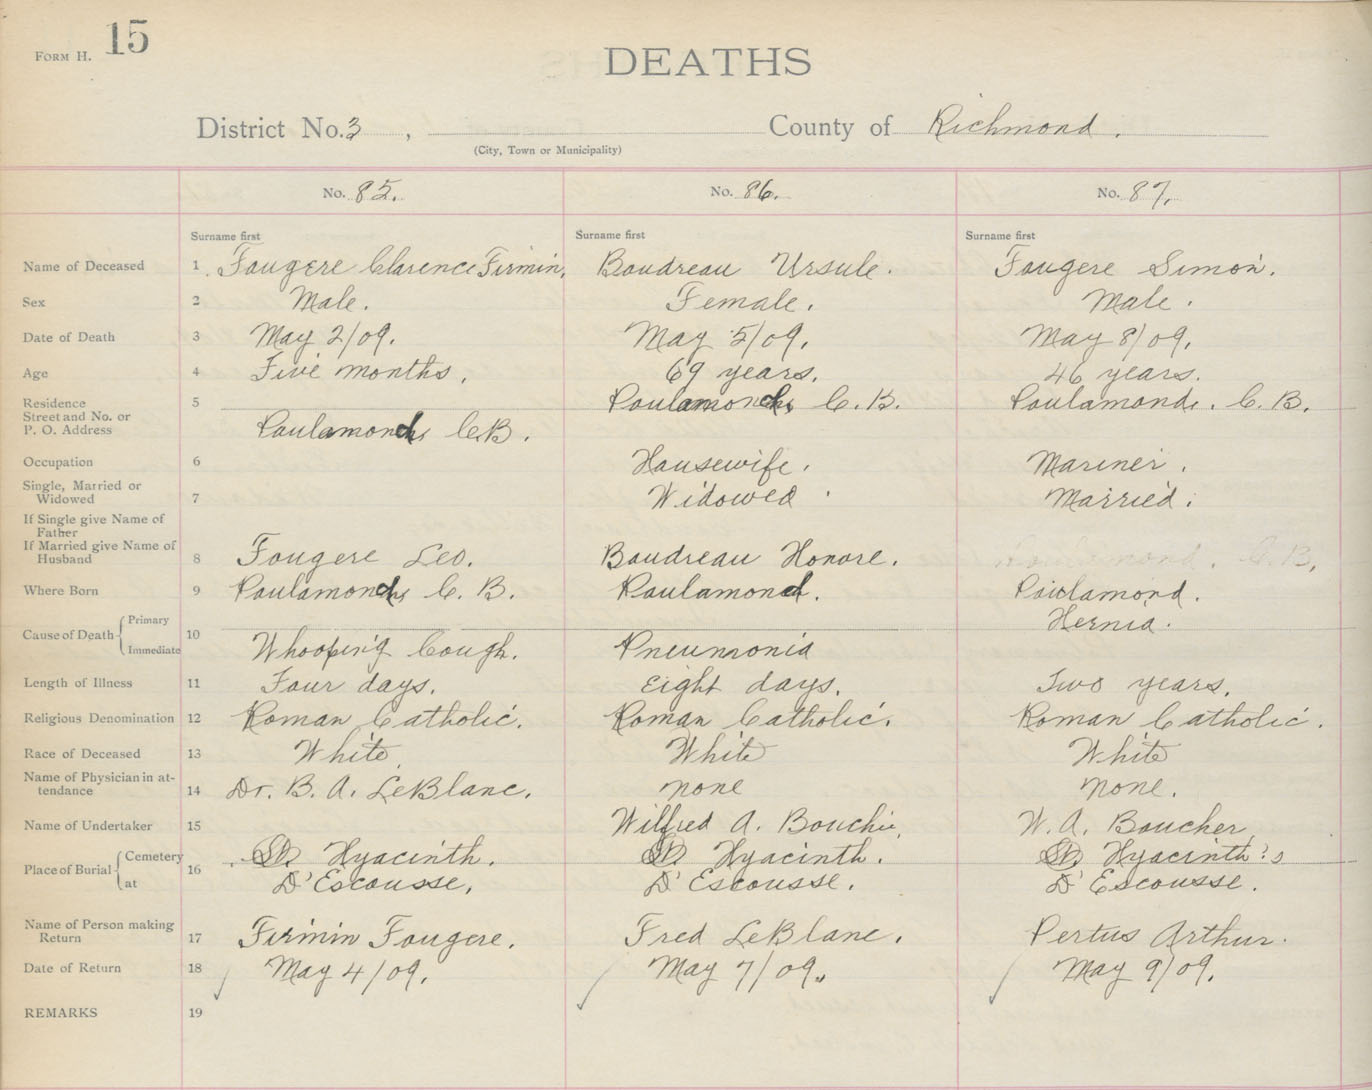 FORM H. 15
DEATHS
District No. 3 , County of Richmond.
(City, Town or Municipality)
No. 85. No. 86. No. 87.
Surname first Surname first Surname first
Name of Deceased 1 Fougere Clarence Firmin. Boudreau Ursule. Fougere Simon.
Sex 2 Male. Female. Male.
Date of Death 3 May 2/09. May 5/09. May 8/09.
Age 4 Five months. 69 years. 46 years.
Residence 5 Poulamonds C.B. Poulamonds. C.B.
Street and No. or
P. O. Address Poulamonds C.B.
Occupation 6 Housewife. Mariner.
Single, Married or
Widowed 7 Widowed. Married.
If Single give Name of
Father
If Married give Name of
Husband 8 Fougere Leo. Boudreau Honore.
Where Born 9 Poulamonds C.B. Poulamond. Poulamond.
Cause of Death Primary Hernia.
10
Immediate Whooping Cough. Pneumonia
Length of Illness 11 Four days. Eight days. Two years.
Religious Denomination 12 Roman Catholic. Roman Catholic. Roman Catholic.
Race of Deceased 13 White. White White
Name of Physician in at-
tendance 14 Dr. B. A. LeBlanc. none none.
Name of Undertaker 15 Wilfred A. Bouchie. W. A. Boucher
Place of Burial Cemetery 16 St. Hyacinth. St. Hyacinth. St. Hyacinth's
at D'Escousse. D'Escousse. D'Escousse.
Name of Person making
Return 17 Firmin Fougere. Fred LeBlanc. Pertus Arthur.
Date of Return 18 May 4/09. May 7/09. May 9/09.
REMARKS 19